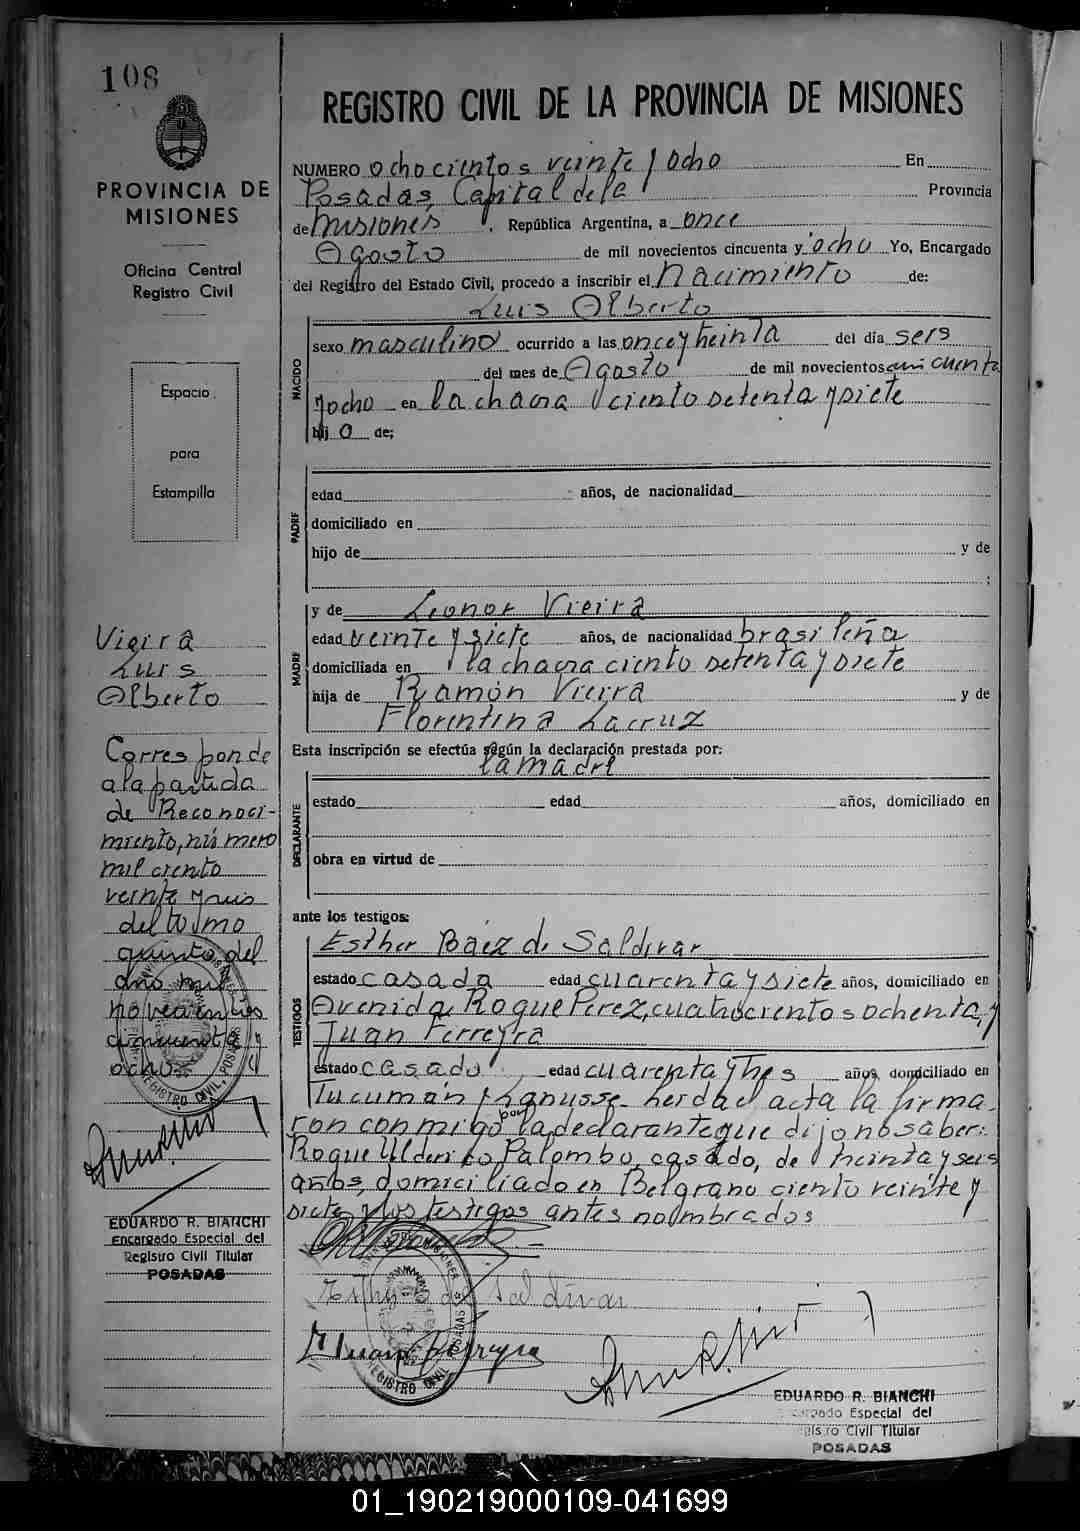 108
PROVINCIA DE
MISIONES
Oficina Central
Registro Civil
Espacio
para
Estampilla
Vieira
Luis
Alberto
Corresponde
a la partida
de Reconoci-
miento, número
mil ciento
veinte y seis
del tomo
quinto del
año mil
novecientos
cincuenta y
ocho
REGISTRO CIVIL, POSADAS
EDUARDO R. BIANCHI
Encargado Especial del
Registro Civil Titular
POSADAS
REGISTRO CIVIL DE LA PROVINCIA DE MISIONES
NUMERO ochocientos veinte y ocho En
Posadas, Capital de la Provincia
de Misiones, República Argentina, a once
Agosto de mil novecientos cincuenta y ocho Yo, Encargado
del Registro del Estado Civil, procedo a inscribir el Nacimiento de:
Luis Alberto
NACIDO
sexo masculino ocurrido a las once y treinta del día seis
del mes de Agosto de mil novecientos cincuenta
y ocho en la chacra ciento setenta y siete
hijo de;
PADRE
edad años, de nacionalidad
domiciliado en
hijo de y de
;
MADRE
y de Leonor Vieira
edad veinte y siete años, de nacionalidad brasileña
domiciliada en la chacra ciento setenta y siete
hija de Ramón Vieira y de
Florentina Lacruz
Esta inscripción se efectúa según la declaración prestada por:
la madre
DECLARANTE
estado edad años, domiciliado en
obra en virtud de
ante los testigos:
TESTIGOS
Esther Báez de Saldivar
estado casada edad cuarenta y siete años, domiciliado en
Avenida Roque Perez, cuatrocientos ochenta, y
Juan Ferreyra
estado casado edad cuarenta y tres años, domiciliado en
Tucumán y Lanusse. Leída el acta la firma-
ron conmigo por la declarante que dijo no saber:
Roque Ulderico Palombo, casado, de treinta y seis
años, domiciliado en Belgrano ciento veinte y
siete y los testigos antes nombrados
Esther B de Saldivar
Juan Ferreyra
REGISTRO CIVIL POSADAS
EDUARDO R. BIANCHI
Encargado Especial del
Registro Civil Titular
POSADAS
01_190219000109-041699